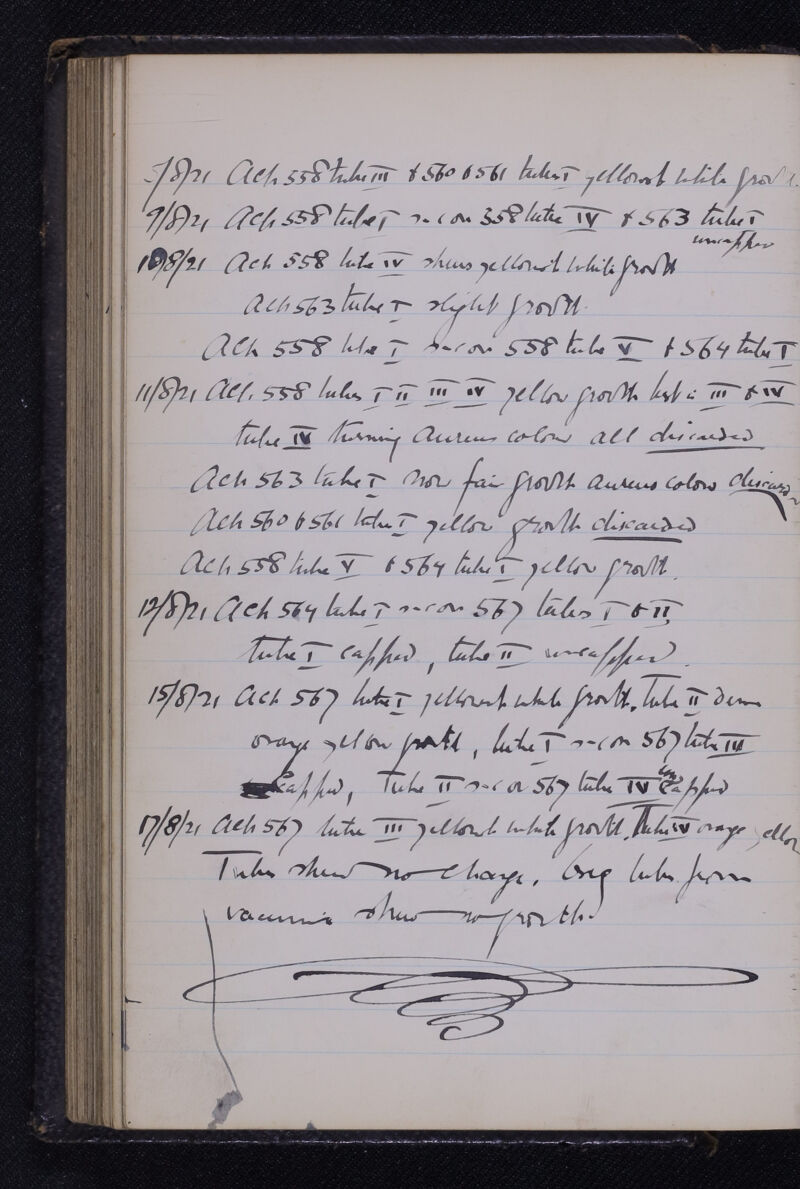 /8/21 Ach 558 tube III & 560 & 561 tubes I yellowish white growth
9/8/21 Ach 558 tube I on 558 tube IV & 563 tube I
uncapped
10/8/21 Ach 558 tube IV shows yellowish white growth
Ach 563 tube I slight growth.
Ach 558 tube I on 558 tube V & 564 tube I
11/8/21 Ach. 558 tubes I II III IV yellow growth best in III & IV
tube IV turning aureus colour all discarded
Ach 563 tube I now fair growth aureus colour discarded
Ach 560 & 561 tube I yellow growth discarded
Ach 558 tube V & 564 tube I yellow growth.
12/8/21 Ach 564 tube I on 567 tubes I & II,
tube I capped, tube II uncapped.
15/8/21 Ach 567 tube I yellowish white growth. Tube II
orange yellow growth, tube I on 567 tube III
capped, Tube II on 567 tube IV uncapped
17/8/21 Ach 567 tube III yellowish white growth. Tube IV orange yellow
Tubes show no change. Orig tubes from
vaccinia show no growth.